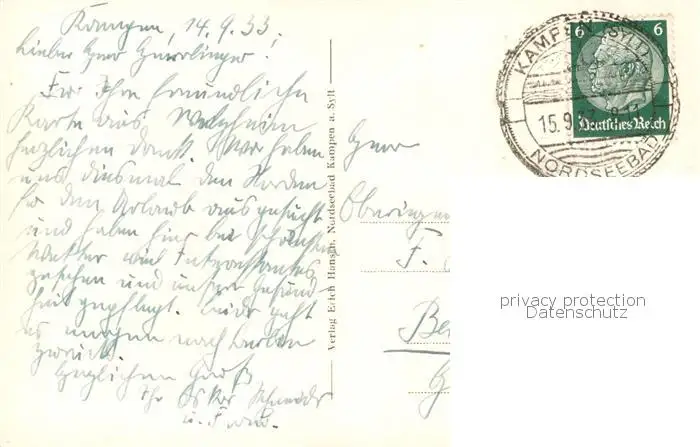 Kampen, 14.9.33.
Lieber Herr
Für Ihre freundliche
Karte aus
herzlichen Dank. Wir haben
uns diesmal den Norden
für den Urlaub ausgesucht
und haben hier bei schönstem
Wetter viel Interessantes
gesehen und unsere Gesund-
heit gepflegt. Leider geht
es morgen nach Berlin
zurück.
Herzlichen Gruß
Ihr Oskar Schneider
u. Frau.
Verlag Erich Hansen, Nordseebad Kampen a. Sylt
KAMPEN (SYLT)
15.9.33
NORDSEEBAD
6 6
Deutsches Reich
Herr
Oberingen
F.
Be
privacy protection
Datenschutz